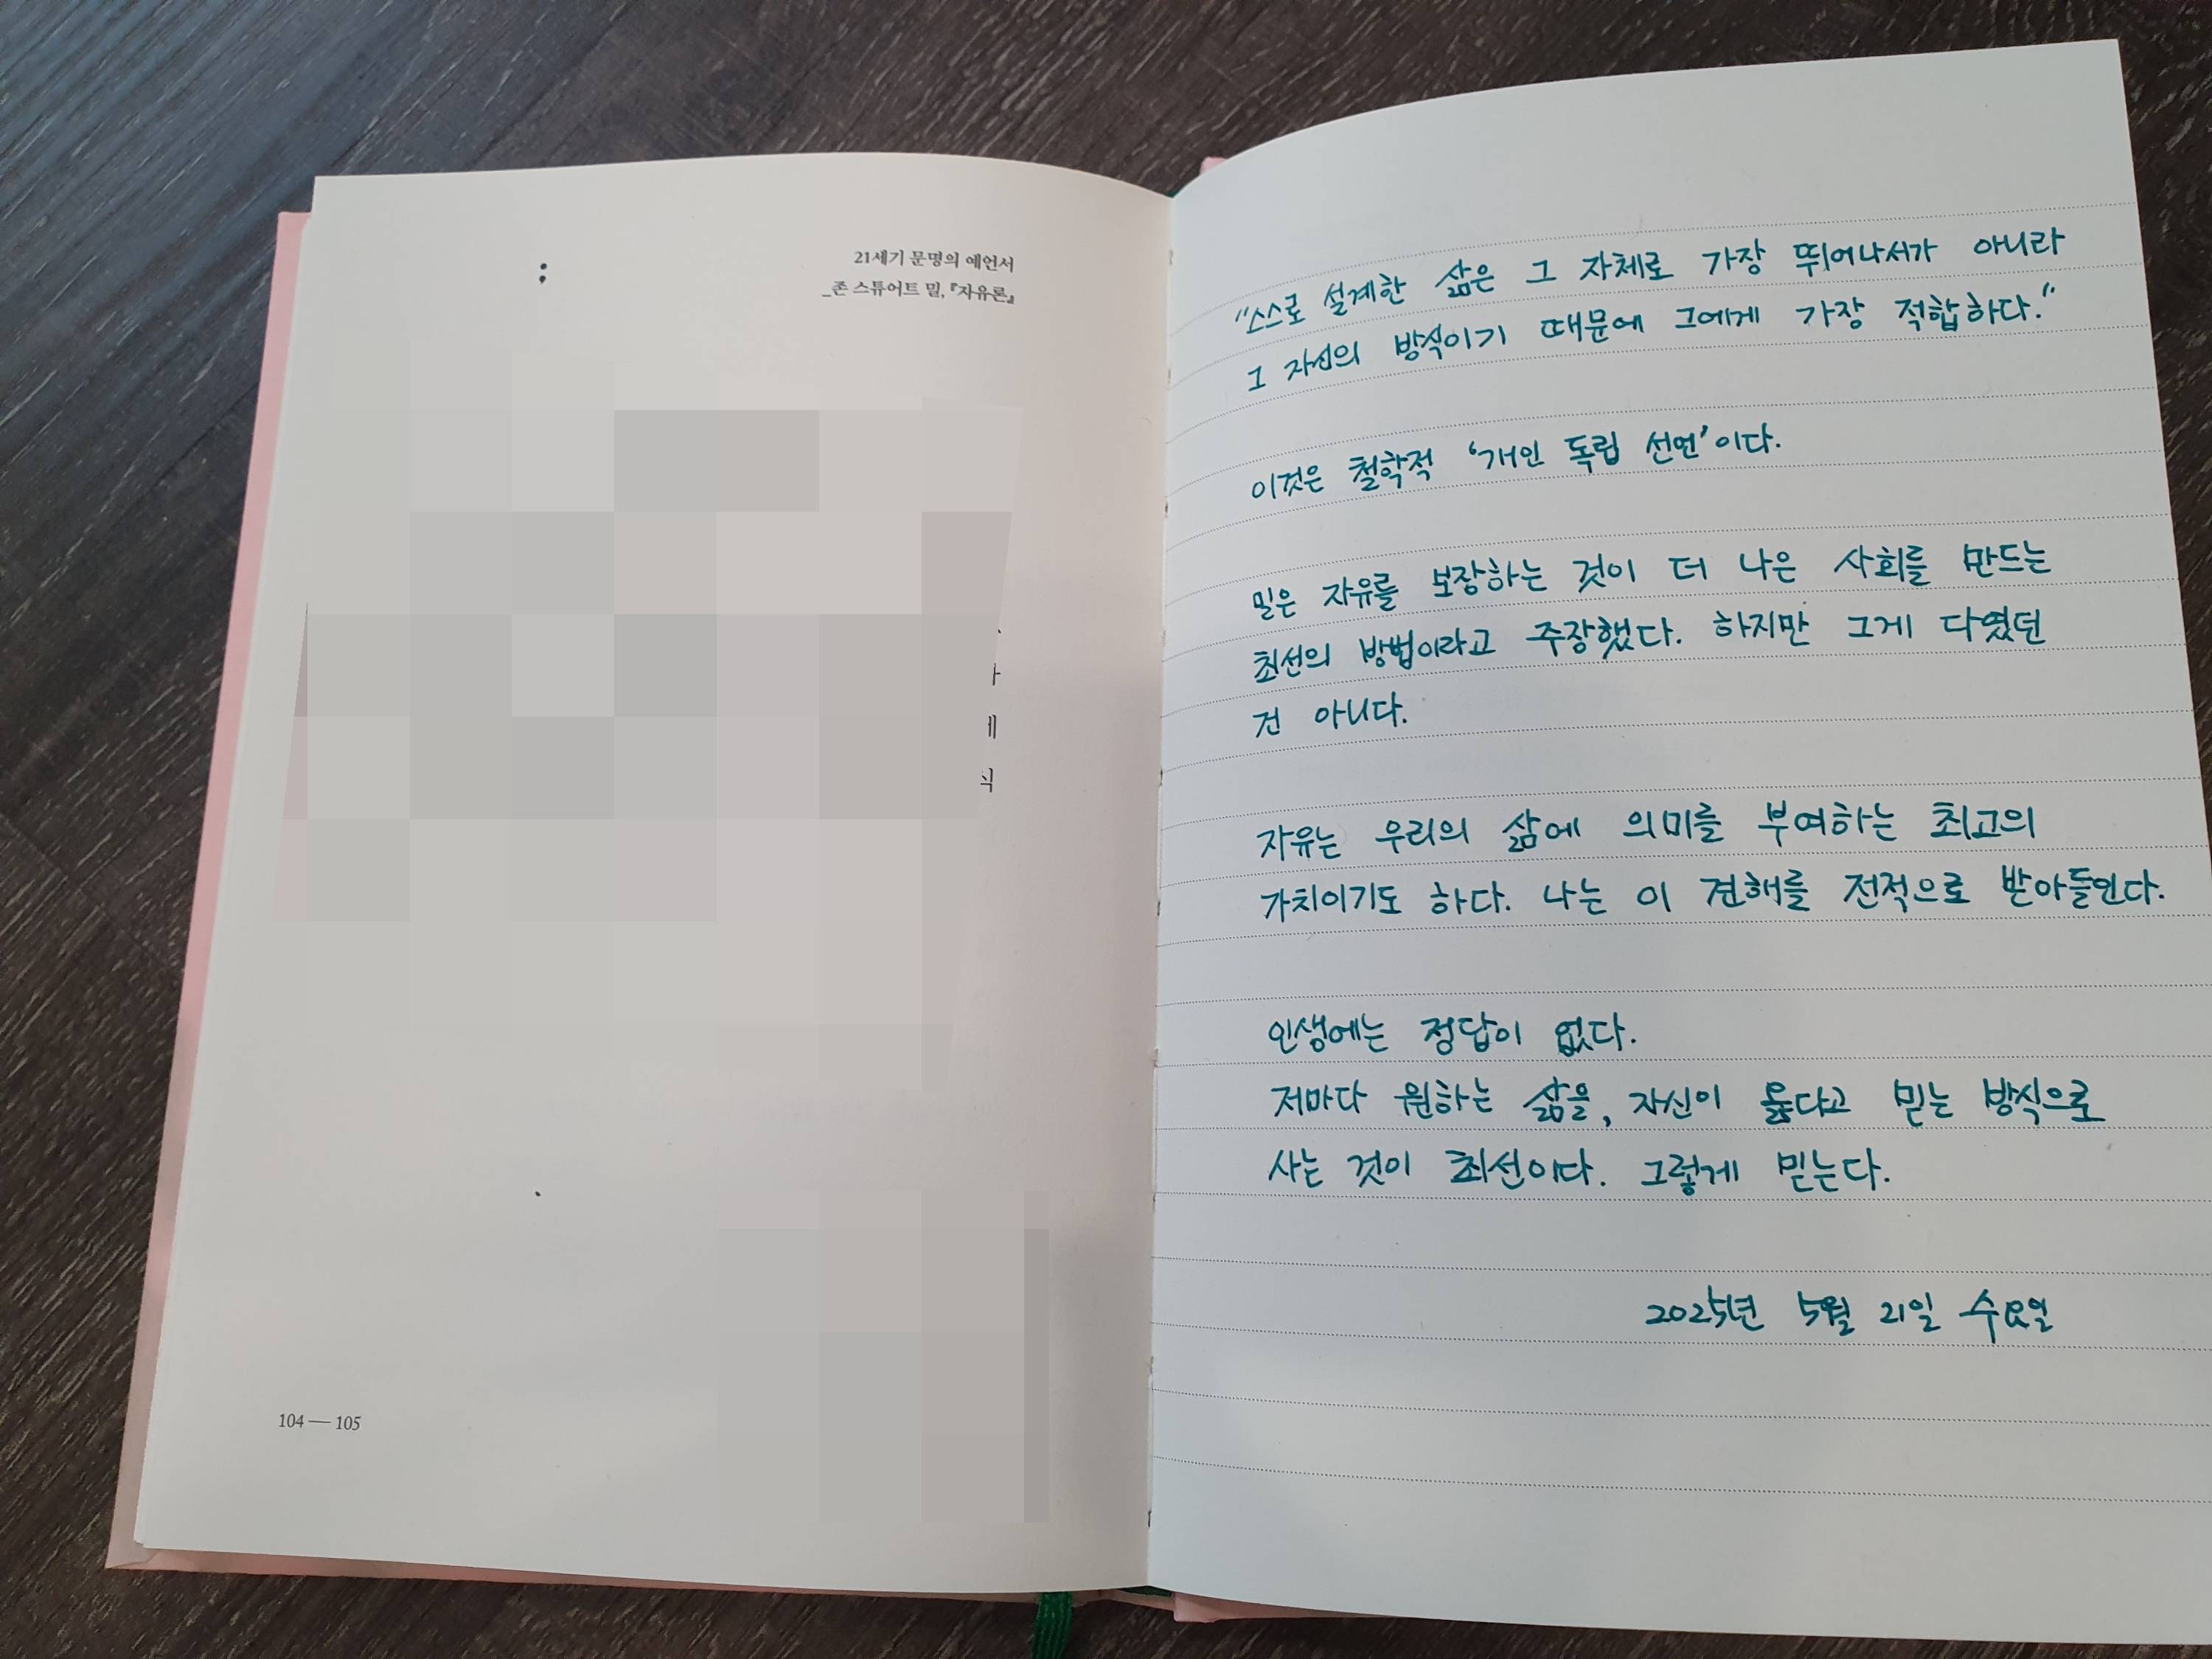 21세기 문명의 예언서
_존 스튜어트 밀, 『자유론』
104 — 105
"스스로 설계한 삶은 그 자체로 가장 뛰어나서가 아니라
그 자신의 방식이기 때문에 그에게 가장 적합하다."
이것은 철학적 '개인 독립 선언'이다.
밀은 자유를 보장하는 것이 더 나은 사회를 만드는
최선의 방법이라고 주장했다. 하지만 그게 다였던
건 아니다.
자유는 우리의 삶에 의미를 부여하는 최고의
가치이기도 하다. 나는 이 견해를 전적으로 받아들인다.
인생에는 정답이 없다.
저마다 원하는 삶을, 자신이 옳다고 믿는 방식으로
사는 것이 최선이다. 그렇게 믿는다.
2025년 5월 21일 수요일